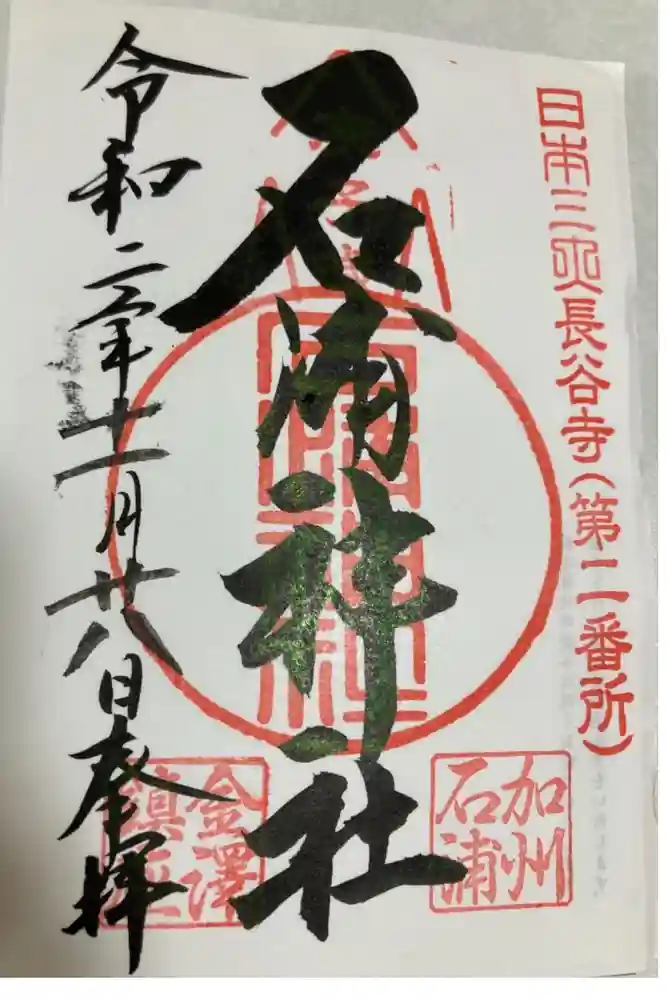 日本三所長谷寺(第二番所)
加州
石浦
石浦神社
金澤
鎮座
令和二年十一月廿八日奉拝